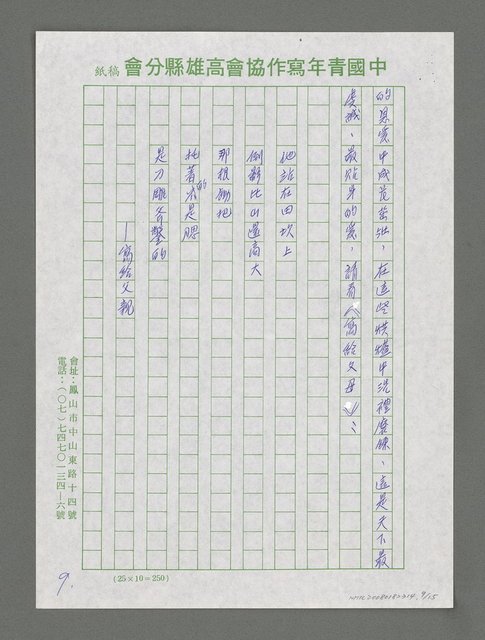 中國青年寫作協會高雄縣分會 稿紙
的恩愛中成長茁壯，在這些烘爐中洗禮磨鍊，這是天下最
虔誠、最貼身的愛，請看〈寫給父母〉：
他站在田坎上
倒影比山還高大
那根鋤把
托著的是腮
是刀雕斧鑿的
—寫給父親
會址：鳳山市中山東路十四號
電話：（〇七）七四七〇一三四—六號
(25×10=250)
9.
9/15